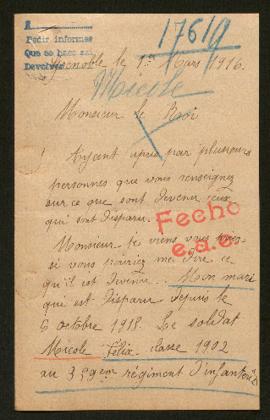 17619
A
Pedir informes
Que se hace así
Devolver
Grenoble le 1er Mars 1916.
Micole
Monsieur le Roi
Ayant appris par plusieurs
personnes que vous renseignez
sur ce que sont devenu ceux
qui sont disparus.
Fecho
e.a.e.
Monsieur je viens vous
si vous voudriez me dire ce
qu'il est devenu. Mon mari
qui est disparu depuis le
5 octobre 1915. Le soldat
Micole Félix classe 1902
au 359em régiment d'infanterie